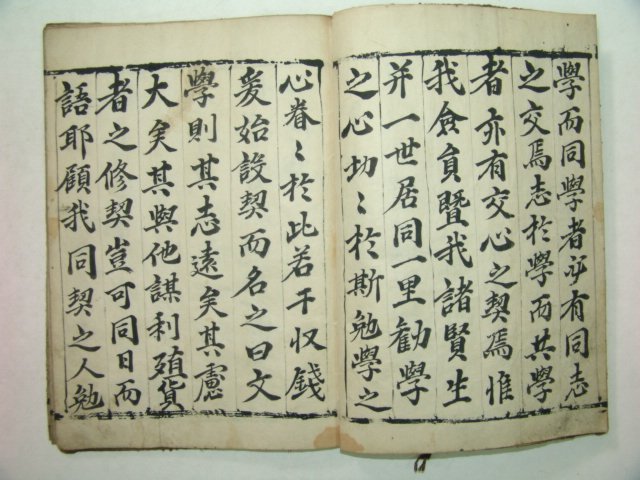 學而同學者亦有同志
之交焉志於學而共學
者亦有交心之契焉惟
我僉員暨我諸賢生
并一世居同一里勸學
之心切〻於斯勉學之
心眷〻於此若干収錢
爰始設契而名之曰文
學則其志遠矣其慮
大矣其與他謀利殖貨
者之修契豈可同日而
語耶顧我同契之人勉